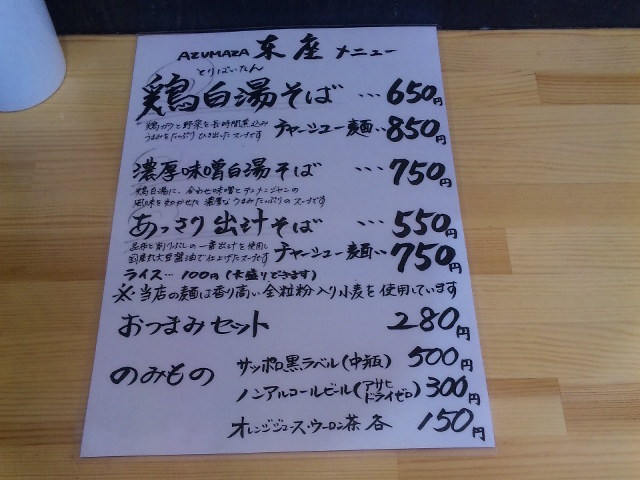 AZUMAZA 東座 メニュー
とりぱいたん
鶏白湯そば … 650円
鶏ガラと野菜を長時間煮込み
うまみをたっぷりひき出したスープです
チャーシュー麺‥ 850円
濃厚味噌白湯そば … 750円
鶏白湯に、合わせ味噌とテンメンジャンの
風味をきかせた濃厚なうまみたっぷりのスープです
あっさり出汁そば … 550円
昆布と削りぶしの一番出汁を使用し
国産丸大豆醤油で仕上げたスープです
チャーシュー麺‥ 750円
ライス… 100円(大盛りできます)
※当店の麺は香り高い全粒粉入り小麦を使用しています
おつまみセット 280円
のみもの
サッポロ黒ラベル(中瓶) 500円
ノンアルコールビール(アサヒドライゼロ) 300円
オレンジジュース・ウーロン茶 各 150円